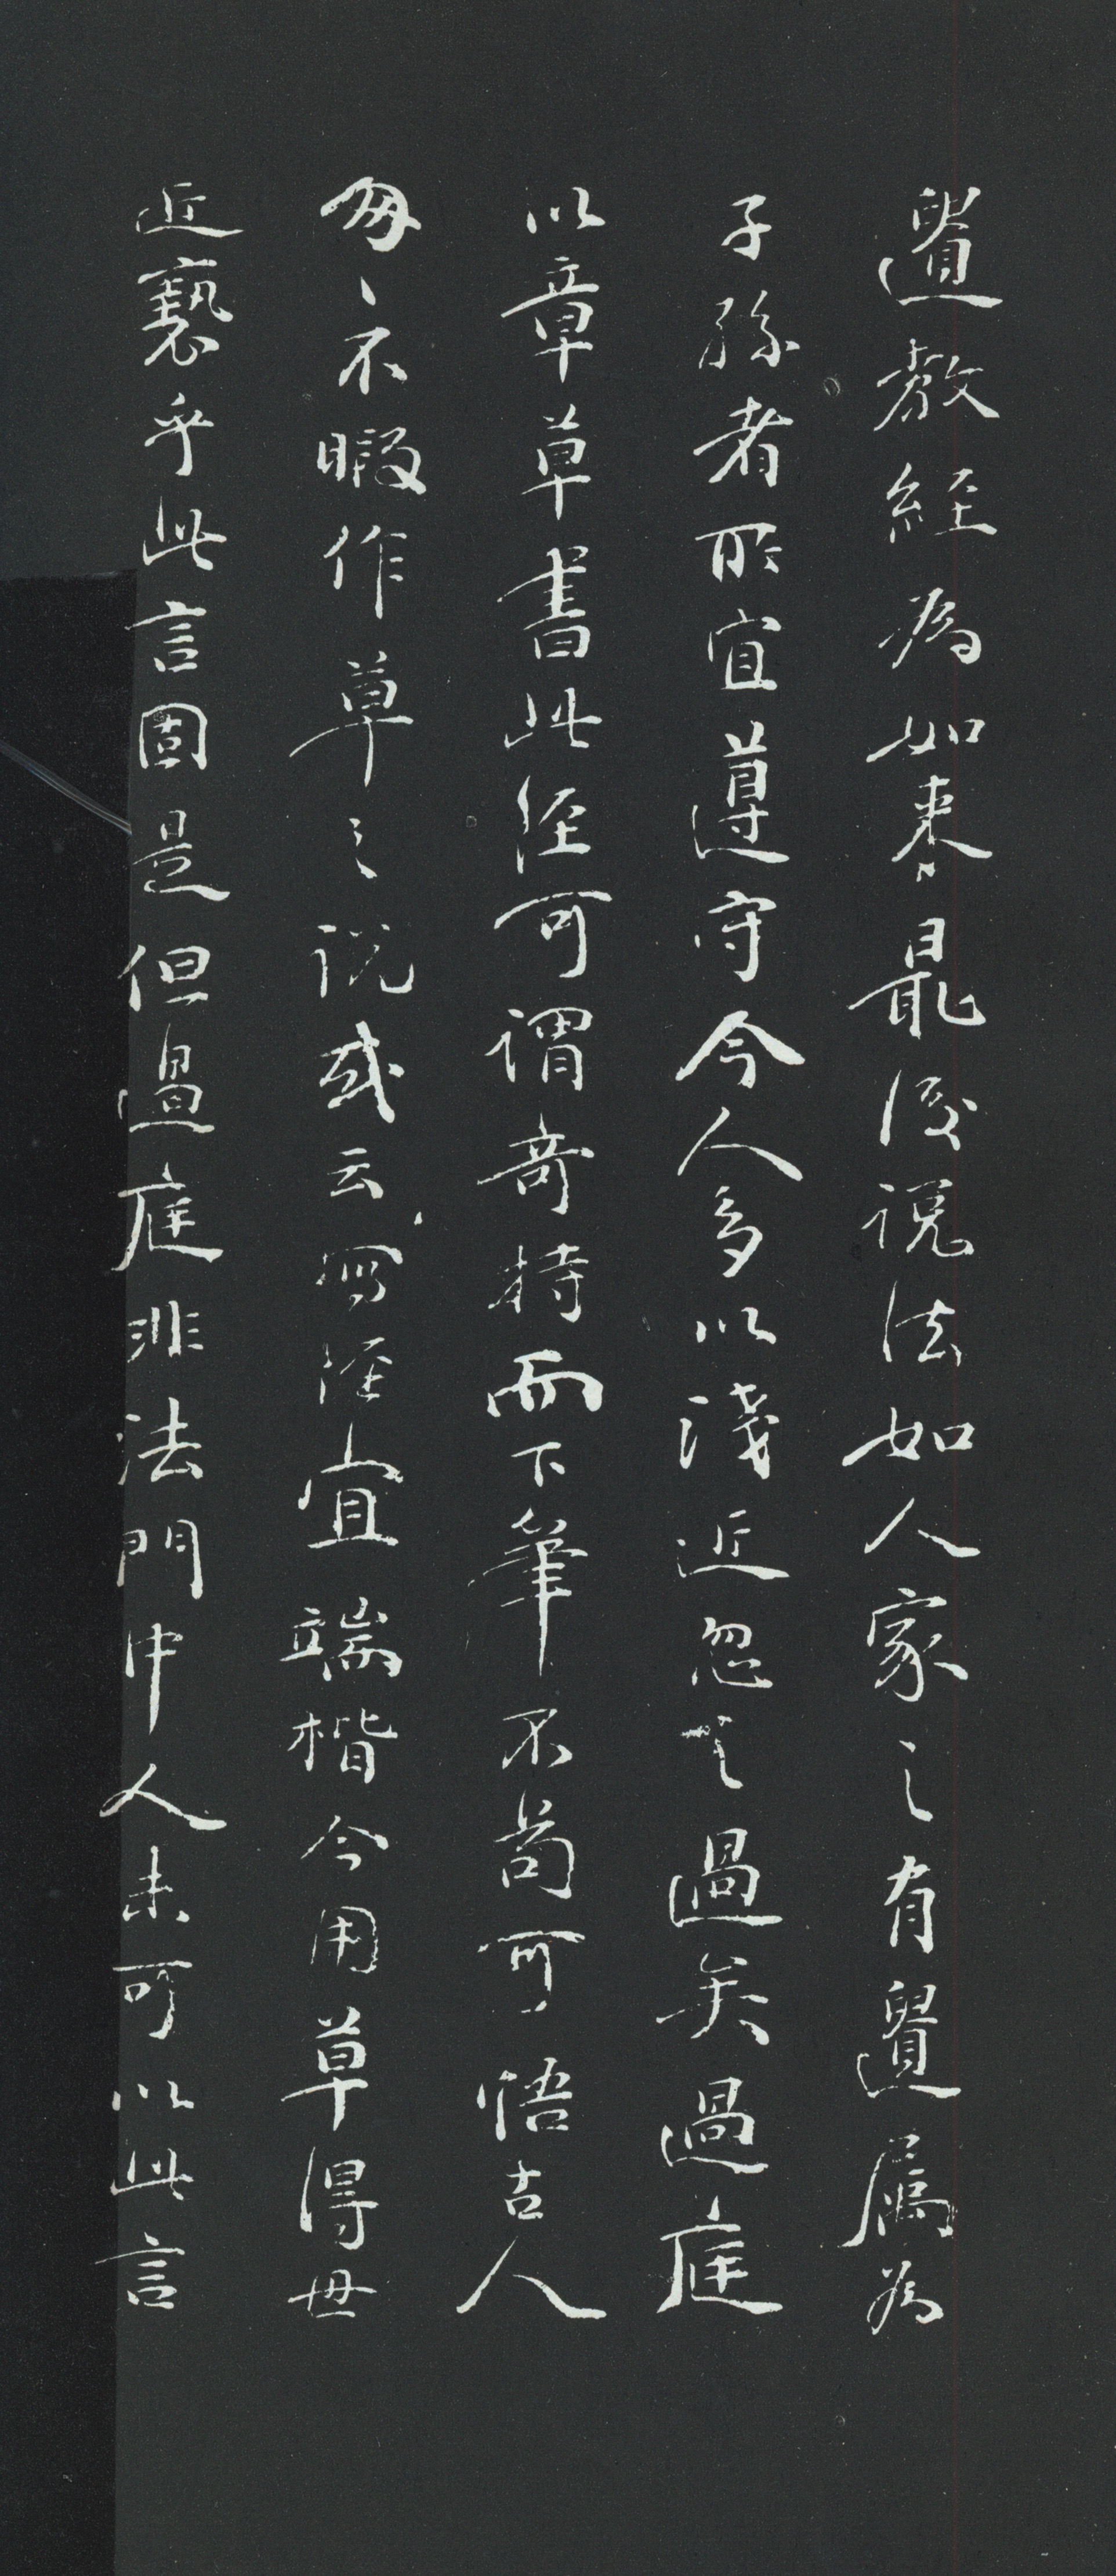 遺教經為如来最後說法如人家之有遺屬為
子孫者所宜遵守今人多以淺近忽之過矣過庭
以章草書此经可謂奇特而下筆不苟可悟古人
匆〻不暇作草之說或云寫经宜端楷今用草得毋
近褻乎此言固是但過庭非法門中人未可以此言